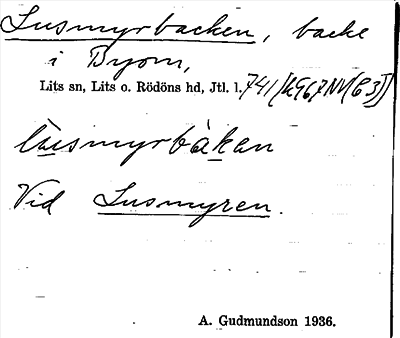 Lusmyrbacken, backe
i Byom,
Lits sn, Lits o. Rödöns hd, Jtl. l.
lùsmyrbàkan
Vid Lusmyren.
A. Gudmundson 1936.